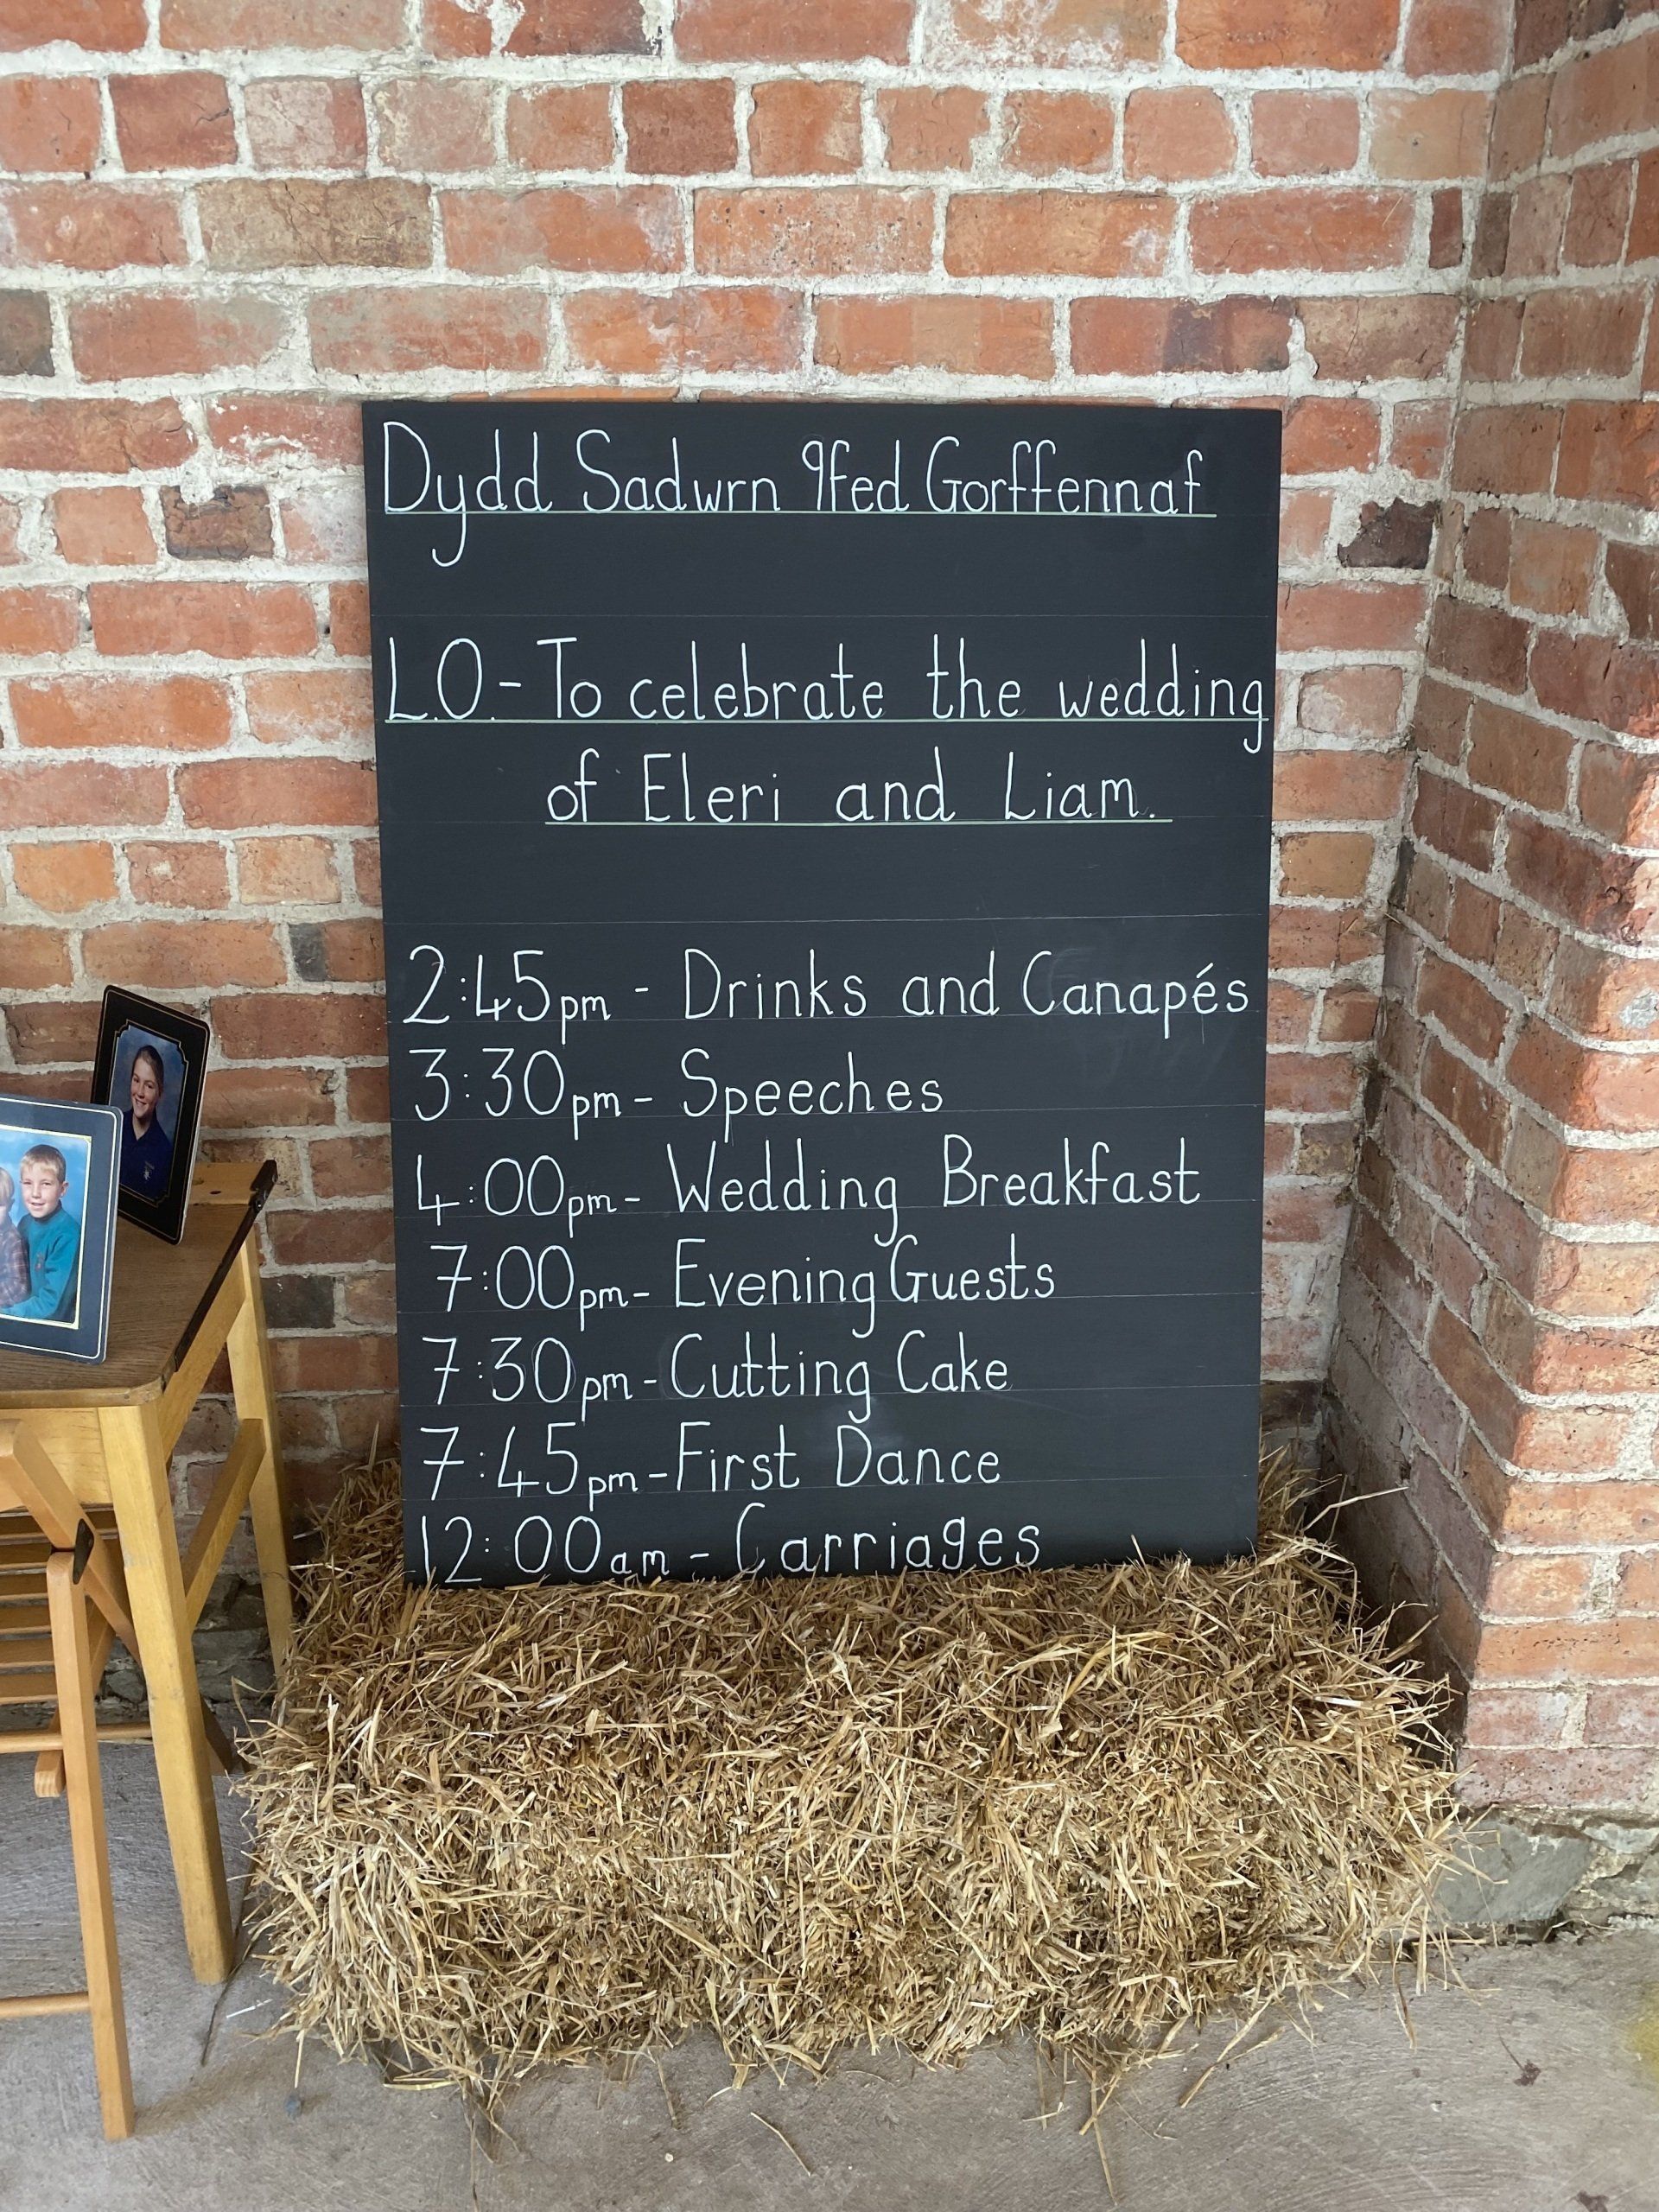 Dydd Sadwrn 9fed Gorffennaf
L.O.- To celebrate the wedding
of Eleri and Liam.
2:45pm - Drinks and Canapés
3:30pm - Speeches
4:00pm - Wedding Breakfast
7:00pm - Evening Guests
7:30pm - Cutting Cake
7:45pm - First Dance
12:00am - Carriages